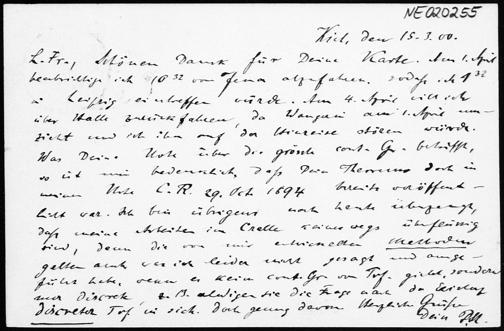 NE020255
Kiel, den 15.3.00.
L. Fr., Schönen Dank für Deine Karte. Am 1. April
beabsichtige ich 10 32 von Jena abzufahren, sodaß ich 1 32
in Leipzig eintreffen würde. Am 4. April will ich
über Halle zurückfahren, da Wangerin am 1. April um-
zieht und ich ihn auf der Hinreise stören würde.
Was Deine Note über die größte cont. Gr. betrifft,
so ist mir bedenklich, daß Dein Theorem doch in
meiner Note C. R. 29. Oct 1894 bereits veröffent-
licht war. Ich bin übrigens noch heute überzeugt,
daß meine Arbeiten im Crelle keineswegs überflüssig
sind, denn die von mir entwickelten Methoden
gelten auch, was ich leider nicht gesagt und ausge-
führt habe, wenn es keine cont. Gr. von Tsf. giebt, sondern
nur discrete, z.B. erledigen sie die Frage nach
discreter Tsf. in sich. Doch genug davon. Herzliche Grüße
Dein P.St.